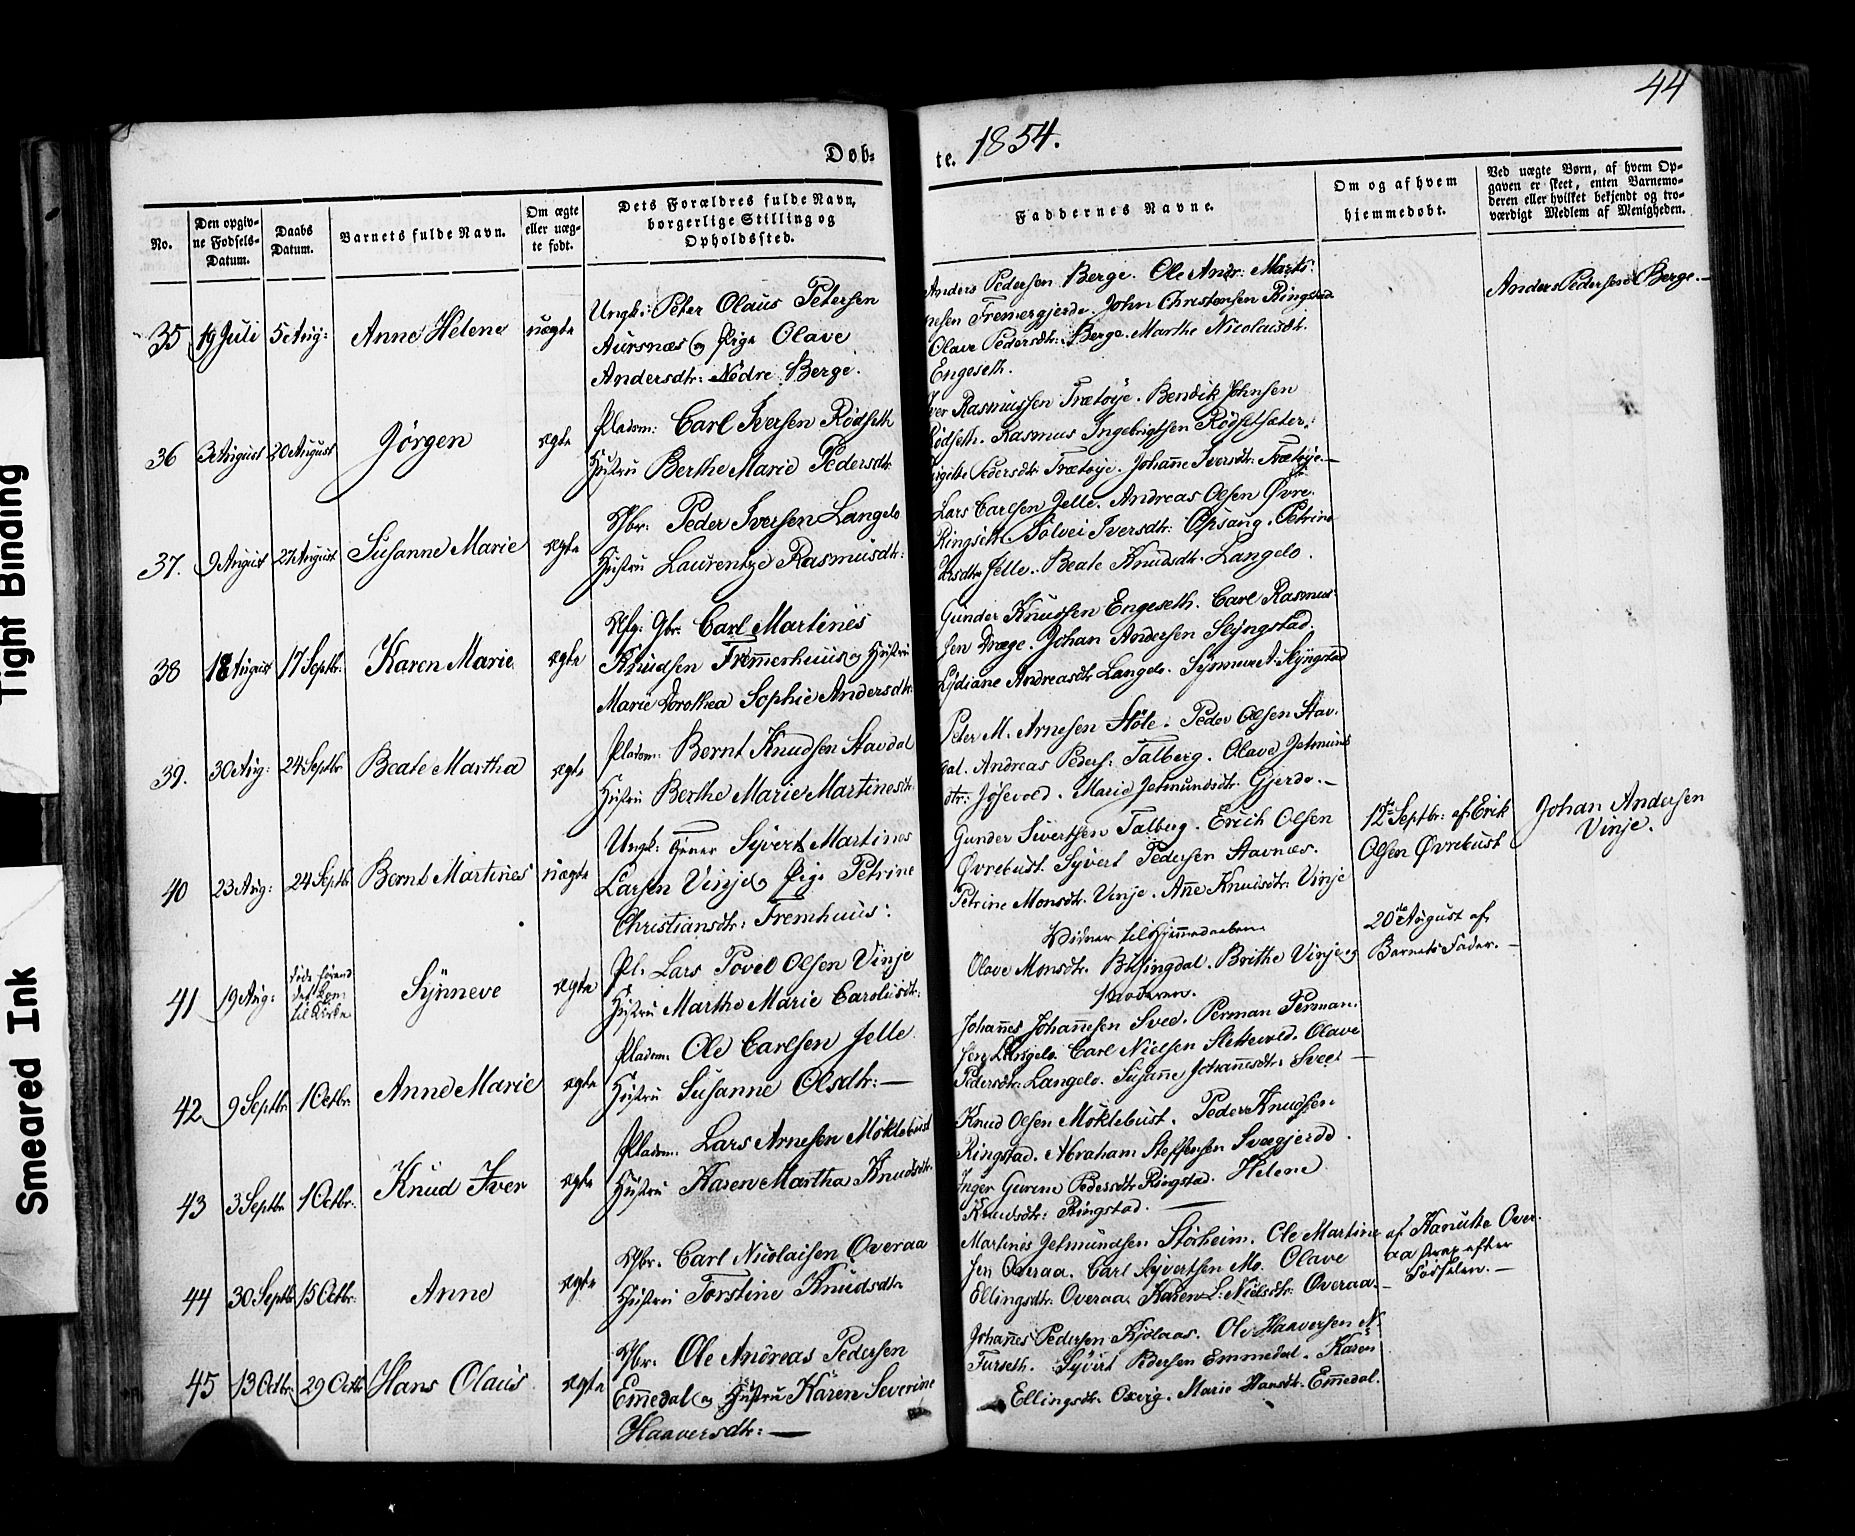 44
Döb-
te. 1854.
No.
Den opgiv-
ne Fødsels-
Datum.
Daabs
Datum.
Barnets fulde Navn.
Om ægte
eller uæg-
te født.
Dets Forældres fulde Navn,
borgerlige Stilling og
Opholdssted.
Faddernes Navne.
Om og af hvem
hjemmedøbt.
Ved uægte Børn, af hvem Op-
gaven er skeet, enten Barnemo-
deren eller hvilket bekjendt og tro-
værdigt Medlem af Menigheden.
35 19 Juli 5 Aug: Anne Helene uægte
Ungk: Peter Olaus Petersen
Aursnæs og Pige Olave
Andersdtr: Nedre Berge.
Anders Pedersen Berge. Ole Andr: Marti-
nesen Fremergjerde. John Christensen Ringstad
Olave Pedersdtr: Berge. Marthe Nicolaisdtr.
Engeseth.
Anders Pedersen Berge.—
36 3 August 20 August Jörgen ægte
Pladsm: Carl Iversen Rödseth
Hustru Berthe Marie Pedersdtr
Iver Rasmussen Trætöye. Bendik Johnsen
Rödseth. Rasmus Ingebrigtsen Rödsetsæter.
Pedersdtr Trætöye. Johanne Iversdtr: Trætöye.—
37. 9 August 27 August Susanne Marie ægte
Gbr: Peder Iversen Langelo
Hustru Laurentze Rasmusdtr:
Lars Carlsen Jelle. Andreas Olsen Övre-
Ringseth. Solvei Iversdtr: Opsaug. Petrine
Jelle. Beate Knudsdtr. Langelo.
38 18 August 17 Septbr: Karen Marie ægte
Gbr. Carl Martines
Knudsen Fremerhuus og Hustru
Marie Dorothea Sophie Andersdtr.
Gunder Knudsen Engeseth. Carl Rasmus-
sen Dræge. Johan Andersen Slyngstad.
Lydiane Andreasdtr Langelo. Synneve A. Slyngstad
39. 30 Aug: 24 Septbr Beate Martha ægte
Pladsm: Bernt Knudsen Stavdal
Hustru Berthe Marie Martinesdtr.
Peter M. Arnesen Stöle. Peder Olsen Stav-
dal. Andreas Peders: Talberg. Olave Jetmunds
dtr: Jösevold. Marie Jetmundsdtr. Gjerde.—
40 23 Aug: 24 Septbr Bernt Martines uægte
Ungk: Syvert Martines
Larsen Vinje og Pige Petrine
Christiansdtr: Fremhuus.
Gunder Sivertsen Talberg. Erich Olsen
Övrebust. Syvert Pedersen Stavnæs.
Petrine Monsdtr. Vinje. Ane Knudsdtr: Vinje
12te Septbr: af Erik
Olsen Övrebust
Johan Andersen
Vinje.
41 19 Aug: döde förend
det kom
til Kirke Synneve ægte
Pl: Lars Povel Olsen Vinje
Hustru Marthe Marie Carolusdtr.
Vidner til Hjemmedaaben.
Olave Monsdtr. Bugingdal. Brithe Vinje og
Moderen.
20de August af
Barnets Fader.—
42 9 Septbr 1 Octbr. Anne Marie ægte
Pladsm: Ole Carlsen Jelle
Hustru Susanne Olsdtr:—
Johannes Johannesen Svee. Perman Perman-
sen Langelo. Carl Nielsen Slettevold. Olave
Pedersdtr: Langelo. Susanne Johannesdtr: Svee.—
43 3 Septbr 1 Octbr. Knud Iver ægte
Pladsm: Lars Arnesen Möklebust
Hustru Karen Martha Knudsdtr.
Knud Olsen Möklebust. Peder Knudsen
Ringstad. Abraham Steffensen Svægjerde.
Inger Gurine Pedersdtr Ringstad. Helene
Knudsdtr: Ringstad.—
44 30 Septbr 15 Octbr: Anne ægte
Gbr. Carl Nicolaisen Overaa
Hustru Torstine Knudsdtr.
Martines Jetmundsen Storheim. Ole Martine-
sen Overaa. Carl Syvertsen Mo. Olave
Ellingsdtr: Overaa. Karen L: Nielsdtr: Overaa.—
af Hanukke Over-
aa strax efter
Födselen.—
45 13 Octbr 29 Octbr Hans Olaus ægte
Gbr. Ole Andreas Pedersen
Emedal og Hustru Karen Severine
Haaversdtr:—
Johannes Pedersen Kjölaas. Ole Haaversen N.
Furseth. Syvert Pedersen Emmedal. Karen
Ellingsdtr. Oxvig. Marie Hansdtr. Emedal.
Tight Binding
Smeared Ink